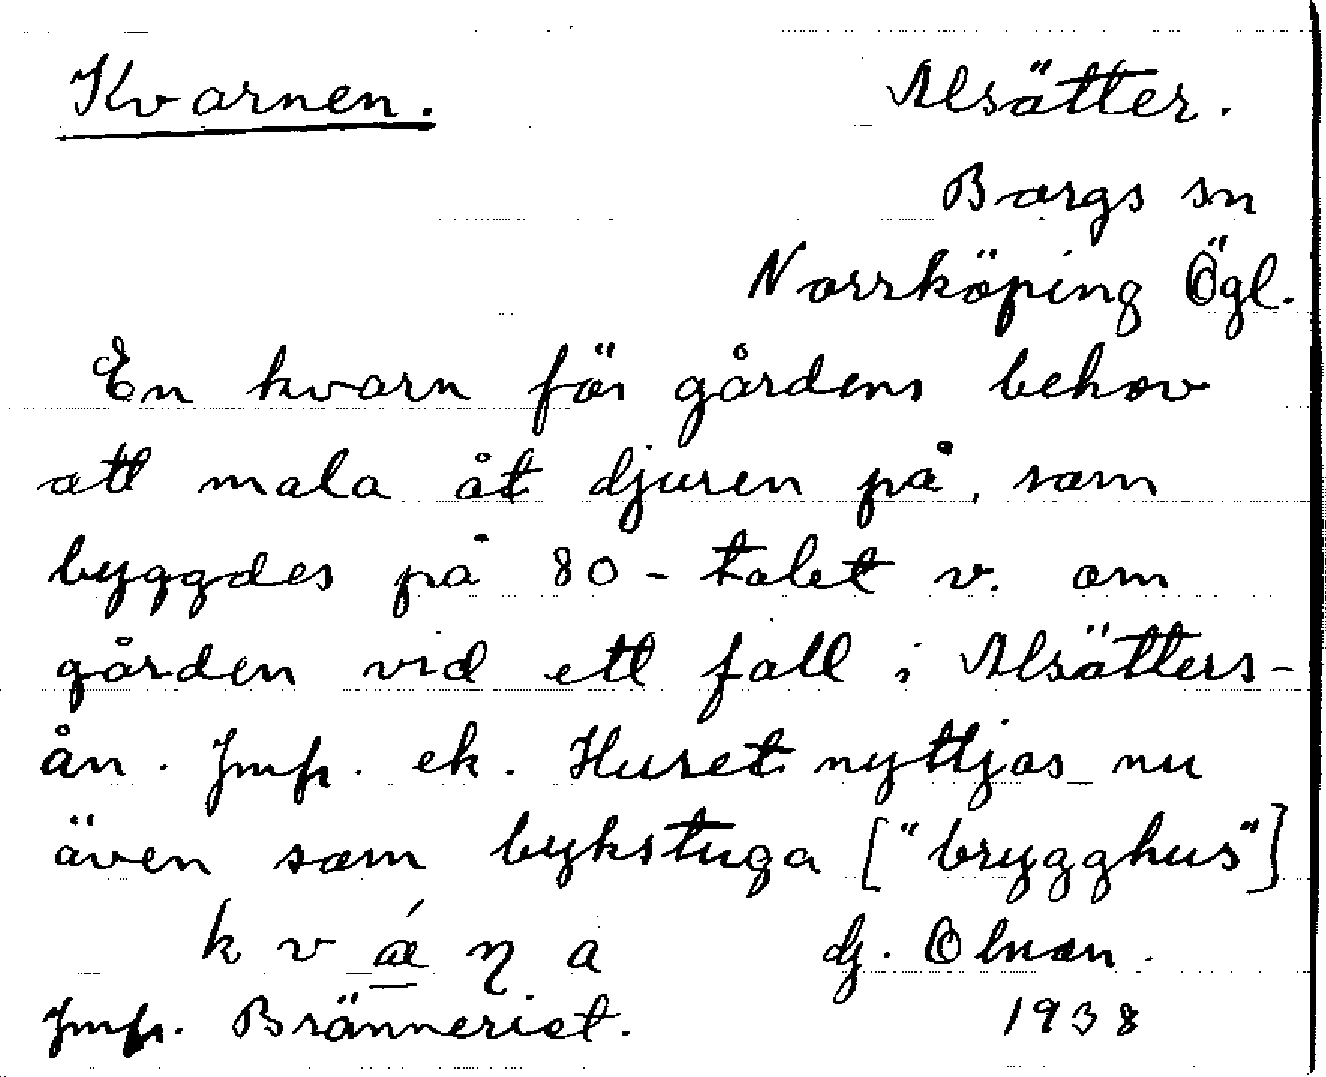 Kvarnen. Alsätter.
Borgs sn
Norrköping Ögl.
En kvarn för gårdens behov
att mala åt djuren på, som
byggdes på 80-talet v. om
gården vid ett fall i Alsätters-
ån. Jmfr. ek. Huset nyttjas nu
även som bykstuga ["brygghus"]
k v á̱ ɳ a G. Olson.
Jmfr. Bränneriet. 1938